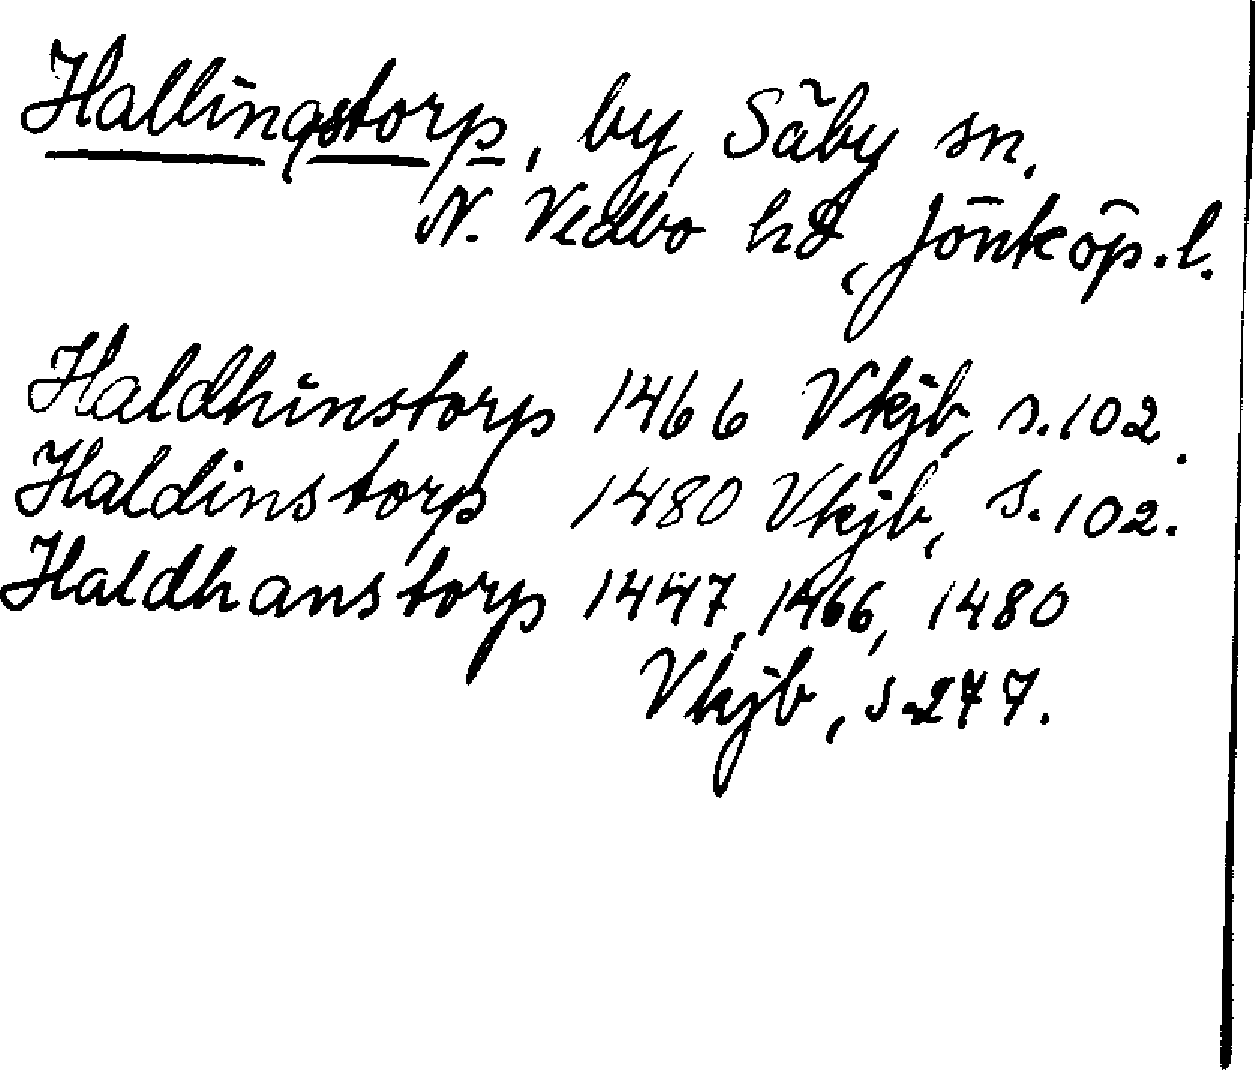 Hallingstorp, by, Säby sn.
N. Vedbo hd, Jönköp. l.
Haldhinstorp 1466 Vkjb, s. 102.
Haldinstorp 1480 Vkjb, s. 102.
Haldhanstorp 1447, 1466, 1480
Vkjb, s. 247.